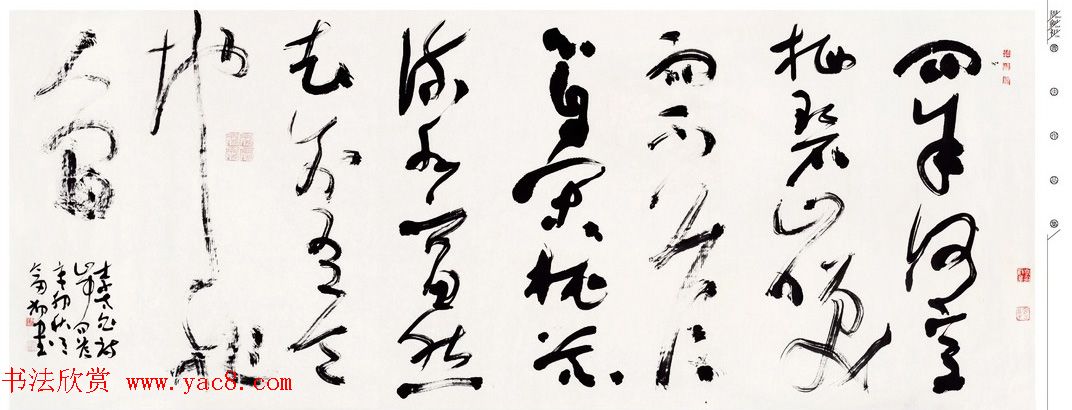 问余何意
栖碧山笑
而不答
心自闲桃花
流水窅然
去别有天
地非
人间
李太白诗
山中问答
书
书法欣赏 www.yac8.com